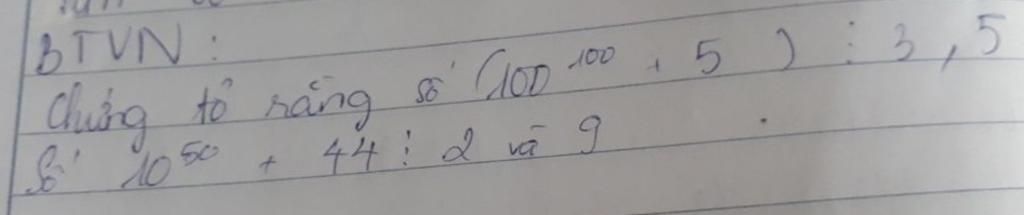 BTVN:
Chứng tỏ rằng số (100¹⁰⁰ + 5) ⋮ 3, 5
Số 10⁵⁰ + 44 ⋮ 2 và 9